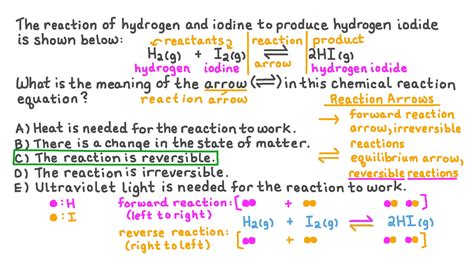 The reaction of hydrogen and iodine to produce hydrogen iodide
is shown below:
reactants reaction product
H₂(g) + I₂(g) ⇌ 2HI(g)
hydrogen iodine arrow hydrogen iodide
What is the meaning of the arrow (⇌) in this chemical reaction
equation? reaction arrow
Reaction Arrows
→ forward reaction
arrow, irreversible
reactions
⇌ equilibrium arrow,
reversible reactions
A) Heat is needed for the reaction to work.
B) There is a change in the state of matter.
C) The reaction is reversible.
D) The reaction is irreversible.
E) Ultraviolet light is needed for the reaction to work.
: H
: I
forward reaction: [ + → ]
(left to right)
H₂(g) + I₂(g) ⇌ 2HI(g)
reverse reaction:
(right to left) [ + ← ]